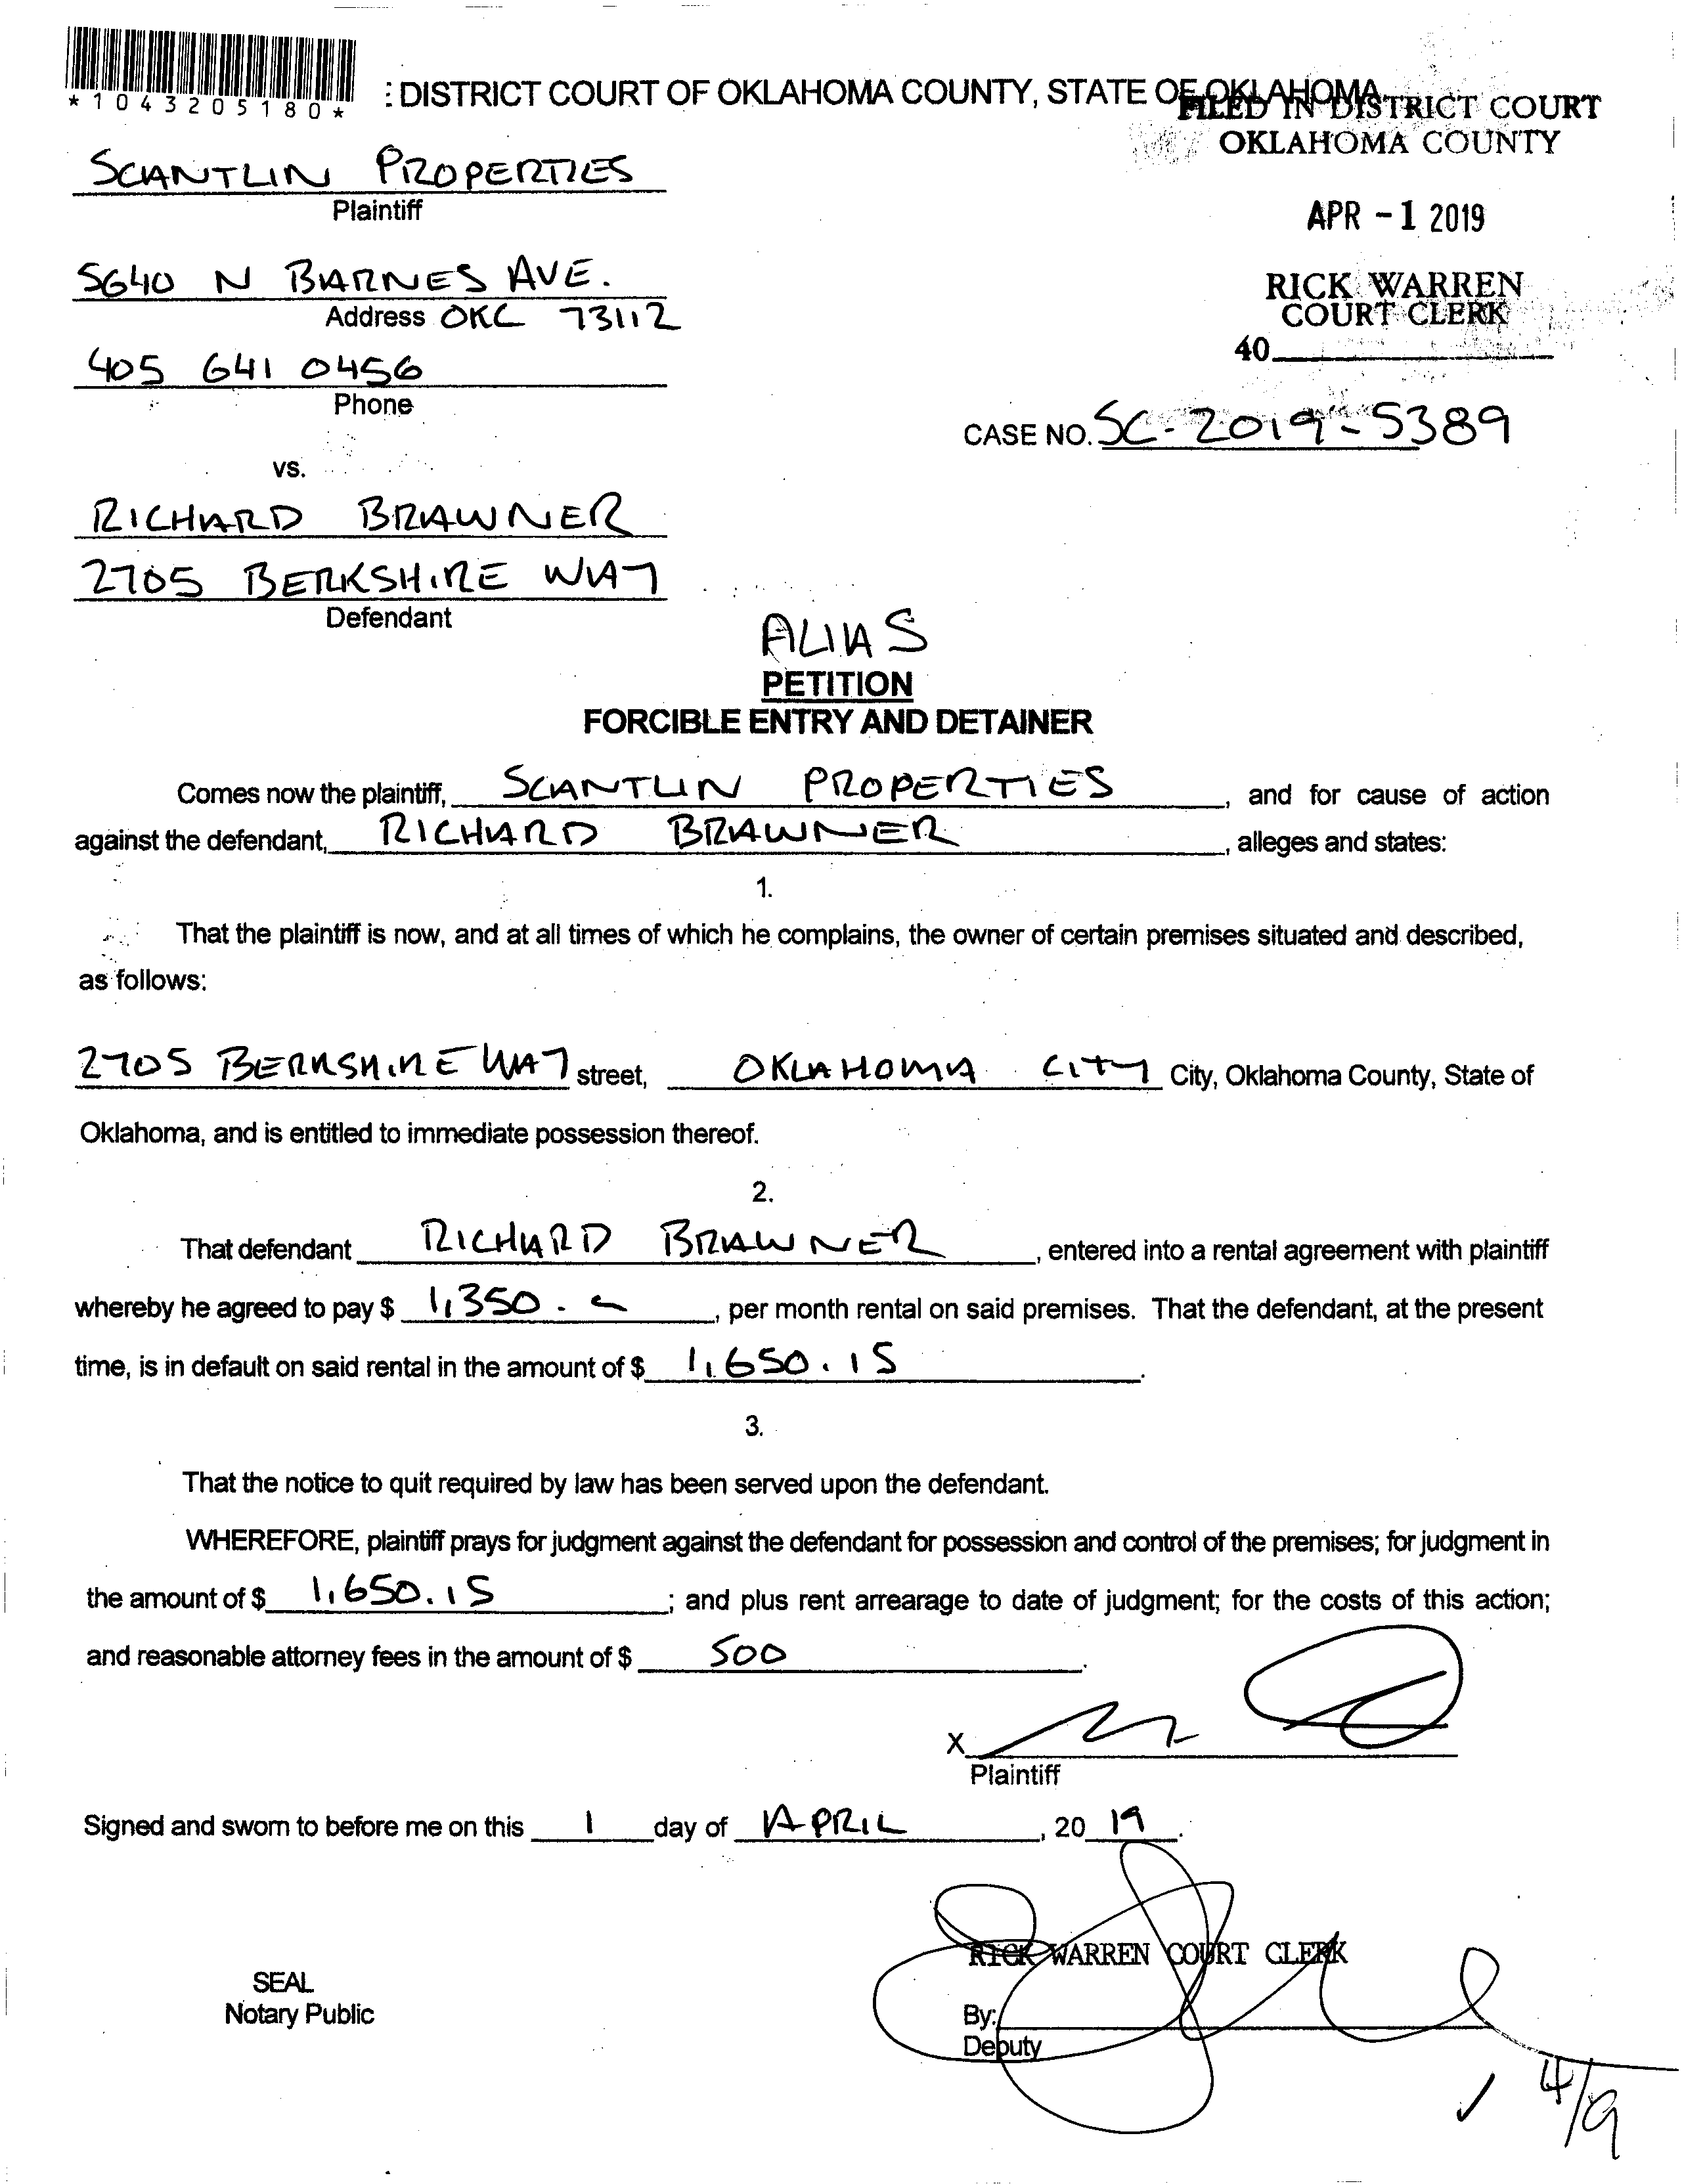 *1043205180*
: DISTRICT COURT OF OKLAHOMA COUNTY, STATE OF OKLAHOMA
FILED IN DISTRICT COURT
OKLAHOMA COUNTY
APR -1 2019
RICK WARREN
COURT CLERK
40
SCANTLIN PROPERTIES
Plaintiff
5640 N BARNES AVE.
Address OKC 73112
405 641 0456
Phone
CASE NO. SC-2019-5389
vs.
RICHARD BRAWNER
2705 BERKSHIRE WAY
Defendant
ALIAS
PETITION
FORCIBLE ENTRY AND DETAINER
Comes now the plaintiff, SCANTLIN PROPERTIES, and for cause of action
against the defendant, RICHARD BRAWNER, alleges and states:
1.
That the plaintiff is now, and at all times of which he complains, the owner of certain premises situated and described,
as follows:
2705 BERKSHIRE WAY street, OKLAHOMA CITY City, Oklahoma County, State of
Oklahoma, and is entitled to immediate possession thereof.
2.
That defendant RICHARD BRAWNER, entered into a rental agreement with plaintiff
whereby he agreed to pay $ 1,350. , per month rental on said premises. That the defendant, at the present
time, is in default on said rental in the amount of $ 1,650.15.
3.
That the notice to quit required by law has been served upon the defendant.
WHEREFORE, plaintiff prays for judgment against the defendant for possession and control of the premises; for judgment in
the amount of $ 1,650.15; and plus rent arrearage to date of judgment; for the costs of this action;
and reasonable attorney fees in the amount of $ 500.
X
Plaintiff
Signed and sworn to before me on this 1 day of APRIL, 20 19.
RICK WARREN COURT CLERK
SEAL
Notary Public
By:
Deputy
4/9